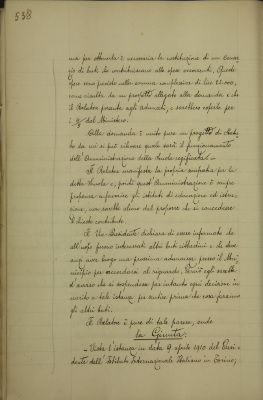 538
ma per attuarla è necessaria la costituzione di un Consor
zio di Enti che contribuiscano alle spese occorrenti. Queste
spese sono previste nella somma complessiva di lire 21.000,
come risulta da un prospetto allegato alla domanda e che
il Relatore presenta agli adunati, e sarebbero coperte per
i 2/3 dal Ministero.
Alla domanda è unito pure un progetto di Statu
to da cui si può rilevare quale sarà il funzionamento
dell'Amministrazione della Scuola vagheggiata.
Il Relatore manifesta la propria simpatia per la
detta Scuola e, poichè quest'Amministrazione è sempre
propensa a favorire gli istituti di educazione ed istru
zione, non sarebbe alieno dal proporre che si concedesse
il chiesto contributo.
Il Vice Presidente dichiara di essere informato che
all'uopo furono interessati altri Enti cittadini e che dove
oggi aver luogo una prossima adunanza presso il Mu
nicipio per accordarsi al riguardo. Perciò egli sarebbe
d'avviso che si soprassedesse per intanto ogni decisione in
merito a tale istanza per sentire prima che cosa faranno
gli altri Enti.
Il Relatore è pure di tale parere, onde
La Giunta:
- Vista l'istanza in data 9 aprile 1910 del Presi
dente dell'Istituto Internazionale Italiano in Torino;